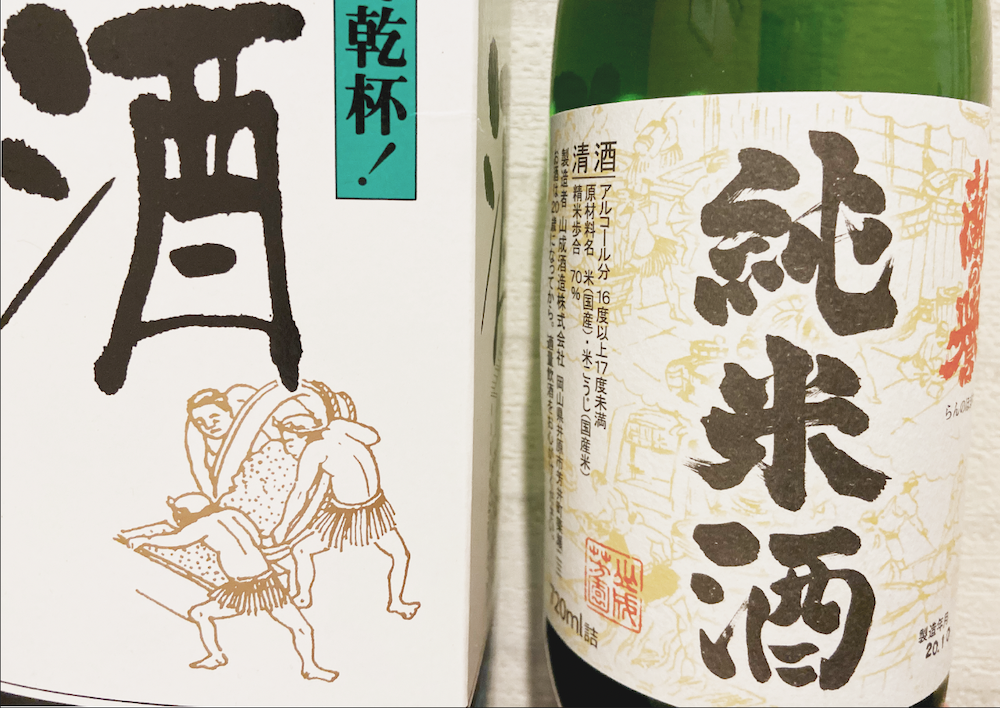 酒
乾杯！
蘭の誉
らんのほま
純米酒
清酒
アルコール分 16度以上17度未満
原材料名 米(国産)・米こうじ(国産米)
精米歩合 70%
製造者 山成酒造株式会社 岡山県井原市芳井町
お酒は20歳になってから。適量飲酒を
720ml詰
製造年月
20.10